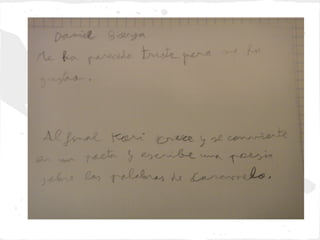 Daniel
Me ha parecido triste pero me ha
gustado.
Al final Kori crece y se convierte
en un poeta y escribe una poesía
sobre las palabras de Caramelo.